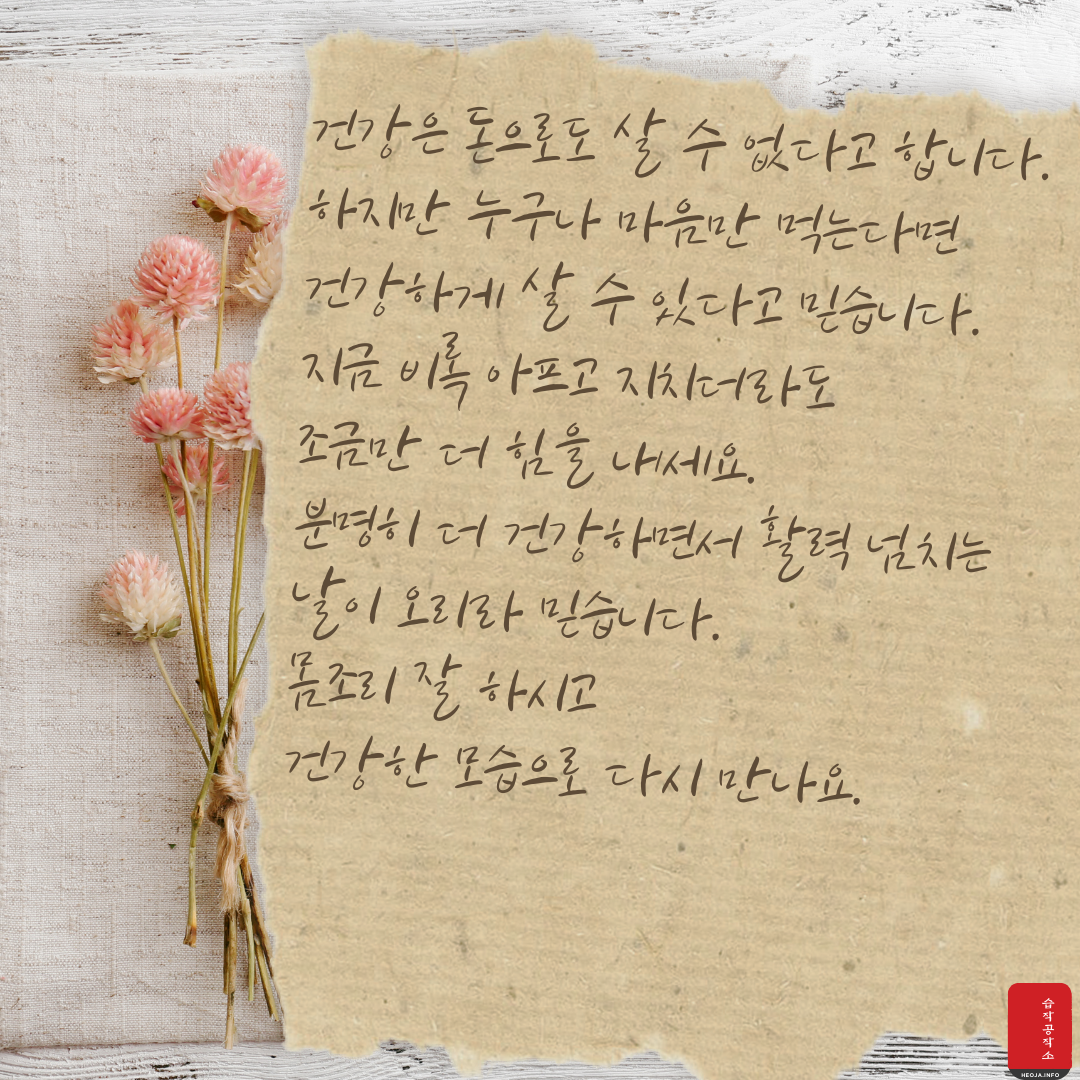 건강은 돈으로도 살 수 없다고 합니다.
하지만 누구나 마음만 먹는다면
건강하게 살 수 있다고 믿습니다.
지금 비록 아프고 지치더라도
조금만 더 힘을 내세요.
분명히 더 건강하면서 활력 넘치는
날이 오리라 믿습니다.
몸조리 잘 하시고
건강한 모습으로 다시 만나요.
습작공작소
HEOJA.INFO